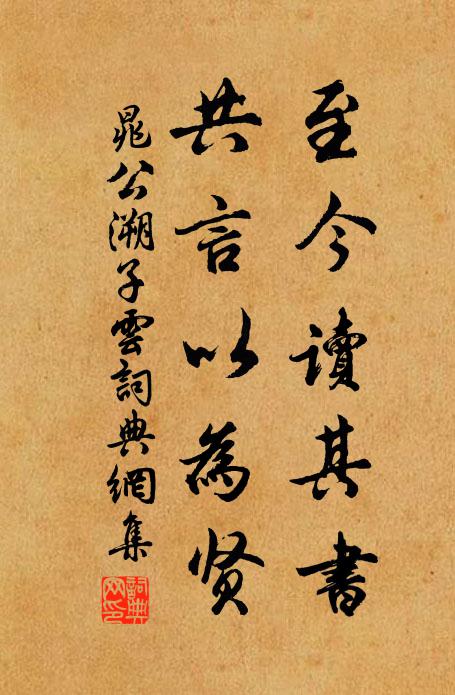 至今讀其書
共言以為贤
晁公溯子雲詞典網集
詞典网印